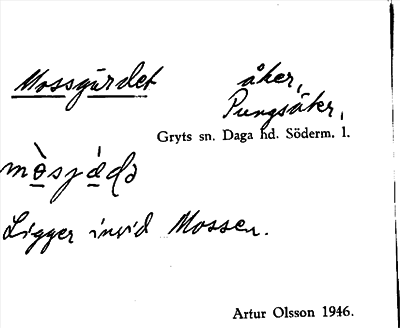 Mossgärdet åker,
Pungsåkr,
Gryts sn. Daga hd. Söderm. l.
Ligger invid Mossen.
Artur Olsson 1946.